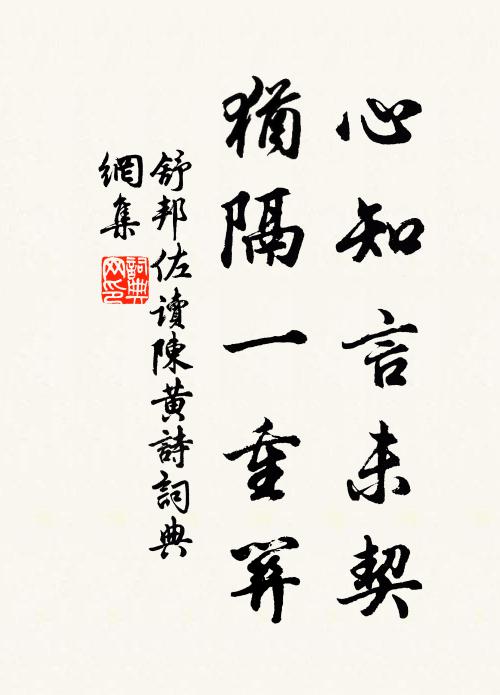 心知言未契
猶隔一重關
舒邦佐讀陳黄詩詞典
網集
詞典
网印